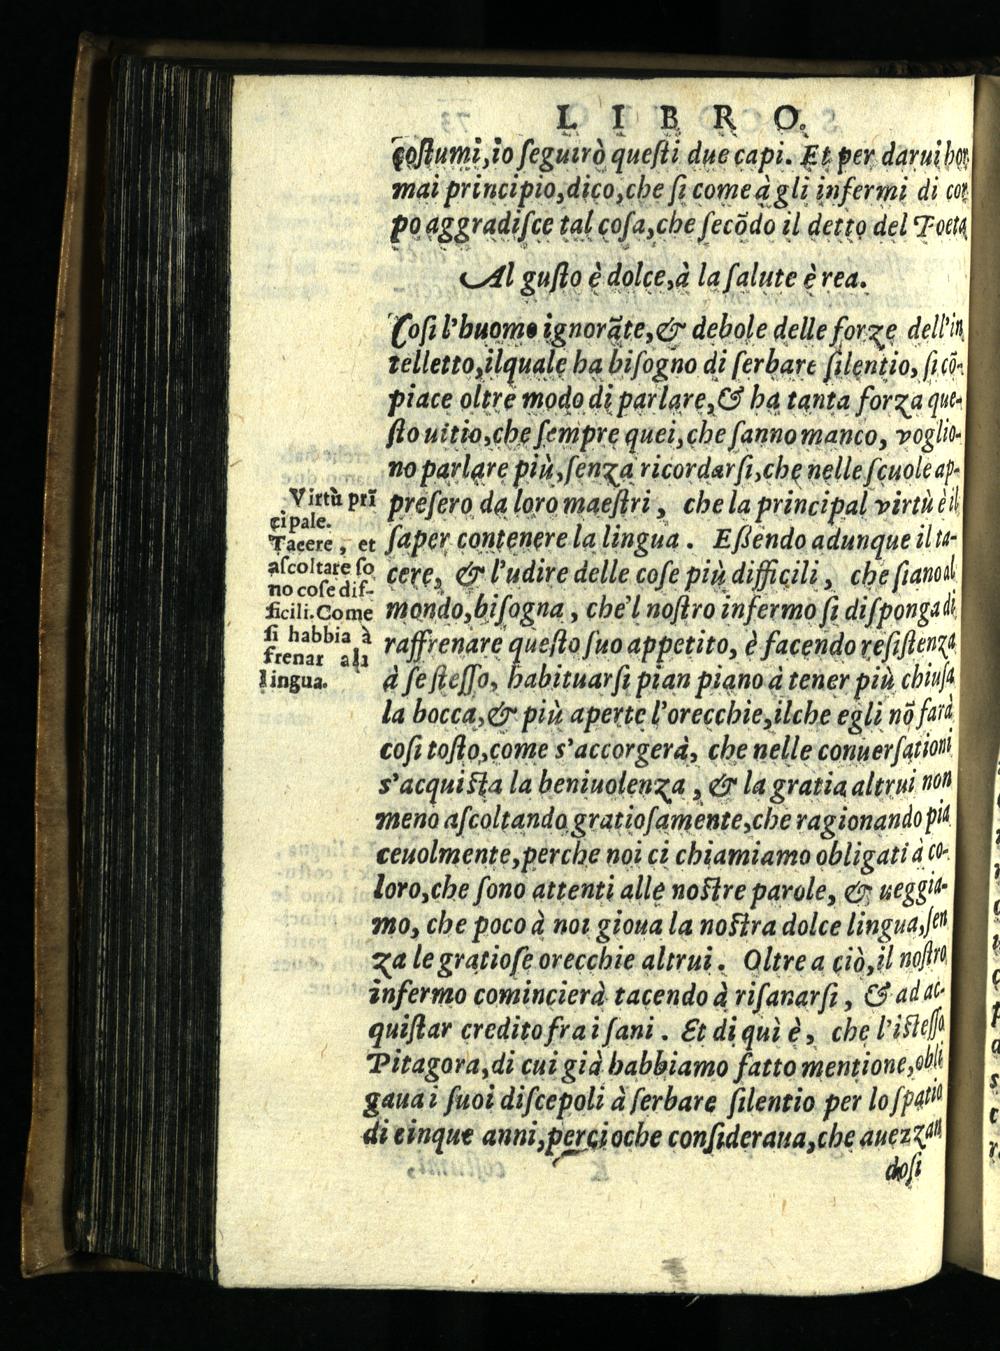 LIBRO.
coſtumi, io ſeguirò queſti due capi. Et per darui hor
mai principio, dico, che ſi come à gli infermi di cor
po aggradiſce tal coſa, che ſecõdo il detto del Poeta
Al guſto è dolce, à la ſalute è rea.
Coſi l'huomo ignorãte, & debole delle forze dell'in
telletto, ilquale ha biſogno di ſerbare ſilentio, ſi cõ-
piace oltre modo di parlare, & ha tanta forza que-
ſto uitio, che ſempre quei, che ſanno manco, voglio-
no parlare più, ſenza ricordarſi, che nelle ſcuole ap-
preſero da loro maeſtri, che la principal virtù è il
ſaper contenere la lingua. Eßendo adunque il ta-
cere, & l'udire delle coſe più difficili, che ſiano al
mondo, biſogna, che'l noſtro infermo ſi diſponga di
raffrenare queſto ſuo appetito, è facendo reſiſtenza
à ſe ſteſſo, habituarſi pian piano à tener più chiuſa
la bocca, & più aperte l'orecchie, ilche egli nõ farà
coſi toſto, come s'accorgerà, che nelle conuerſationi
s'acquiſta la beniuolenza, & la gratia altrui non
meno aſcoltando gratioſamente, che ragionando pia
ceuolmente, perche noi ci chiamiamo obligati à co-
loro, che ſono attenti alle noſtre parole, & ueggia-
mo, che poco à noi gioua la noſtra dolce lingua, ſen
za le gratioſe orecchie altrui. Oltre a ciò, il noſtro
infermo comincierà tacendo à riſanarſi, & ad ac-
quiſtar credito fra i ſani. Et di quì è, che l'iſteſſo
Pitagora, di cui già habbiamo fatto mentione, obli
gaua i ſuoi diſcepoli à ſerbare ſilentio per lo ſpatio
di cinque anni, percioche conſideraua, che auezzan
doſi
Virtù prĩ
cipale.
Tacere, et
aſcoltare ſo
no coſe diſ-
ficili. Come
ſi habbia à
frenar ala
lingua.